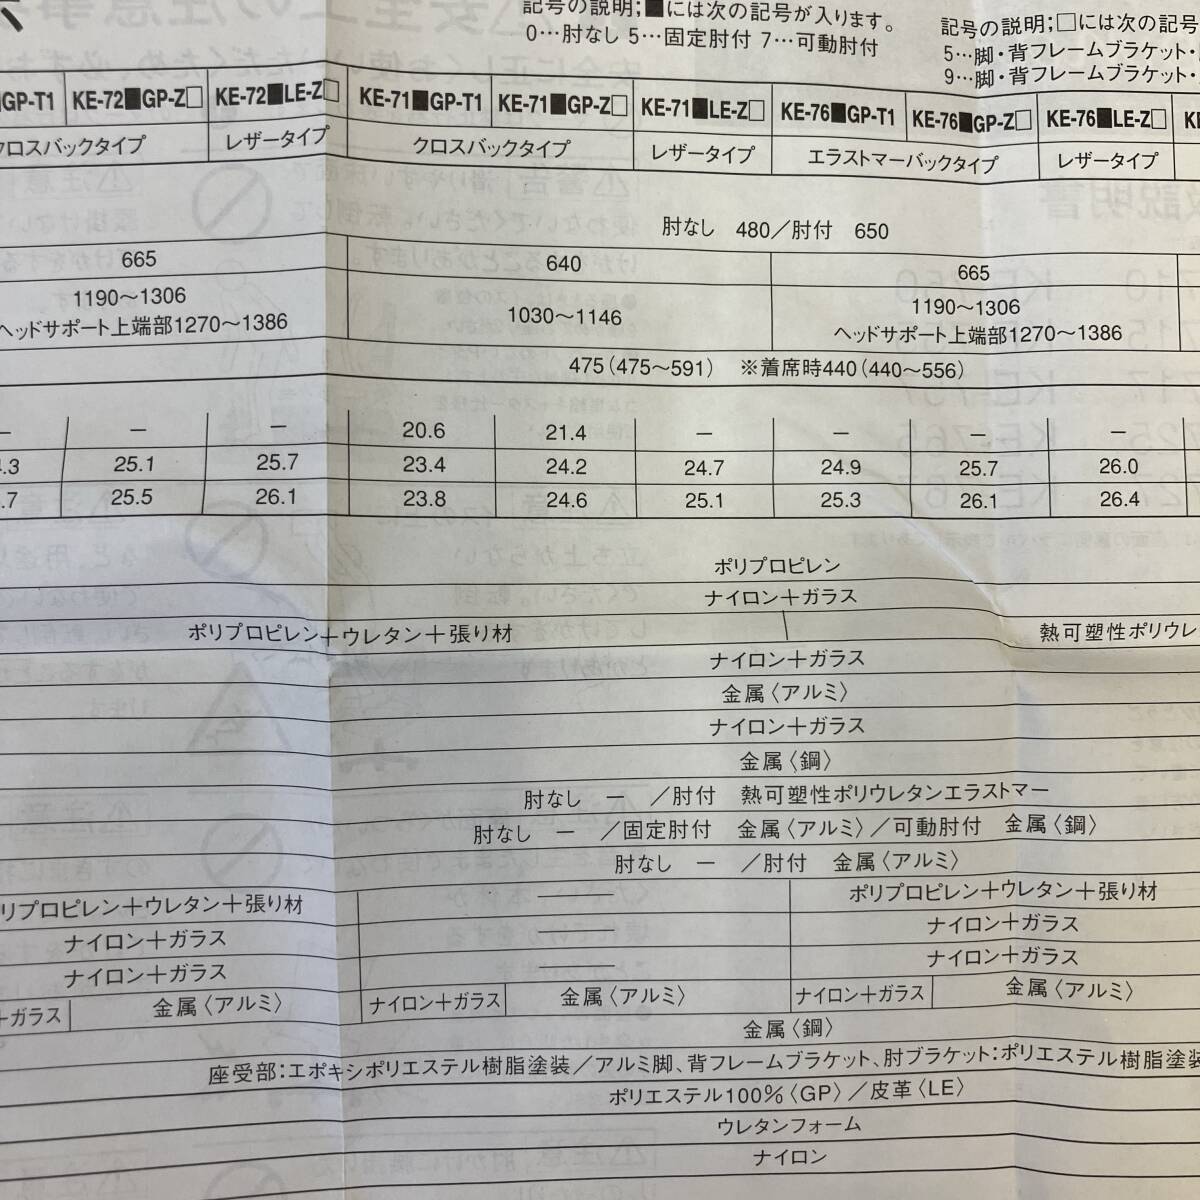 記号の説明;■には次の記号が入ります。
0…肘なし 5…固定肘付 7…可動肘付
記号の説明;□には次の記号
5…脚・背フレームブラケット・
9…脚・背フレームブラケット・
GP-T1 KE-72■GP-Z□ KE-72■LE-Z□ KE-71■GP-T1 KE-71■GP-Z□ KE-71■LE-Z□ KE-76■GP-T1 KE-76■GP-Z□ KE-76■LE-Z□ KE
クロスバックタイプ レザータイプ クロスバックタイプ レザータイプ エラストマーバックタイプ レザータイプ
肘なし 480/肘付 650
665 640 665
1190〜1306
ヘッドサポート上端部1270〜1386
1030〜1146
1190〜1306
ヘッドサポート上端部1270〜1386
475(475〜591) ※着席時440(440〜556)
― ― ― 20.6 21.4 ― ― ― ―
.3 25.1 25.7 23.4 24.2 24.7 24.9 25.7 26.0
.7 25.5 26.1 23.8 24.6 25.1 25.3 26.1 26.4
ポリプロピレン
ナイロン+ガラス
ポリプロピレン+ウレタン+張り材 熱可塑性ポリウレ
ナイロン+ガラス
金属〈アルミ〉
ナイロン+ガラス
金属〈鋼〉
肘なし ― /肘付 熱可塑性ポリウレタンエラストマー
肘なし ― /固定肘付 金属〈アルミ〉/可動肘付 金属〈鋼〉
肘なし ― /肘付 金属〈アルミ〉
リプロピレン+ウレタン+張り材 ― ポリプロピレン+ウレタン+張り材
ナイロン+ガラス ― ナイロン+ガラス
ナイロン+ガラス ― ナイロン+ガラス
+ガラス 金属〈アルミ〉 ナイロン+ガラス 金属〈アルミ〉 ナイロン+ガラス 金属〈アルミ〉
金属〈鋼〉
座受部:エポキシポリエステル樹脂塗装/アルミ脚、背フレームブラケット、肘ブラケット:ポリエステル樹脂塗装
ポリエステル100%〈GP〉/皮革〈LE〉
ウレタンフォーム
ナイロン